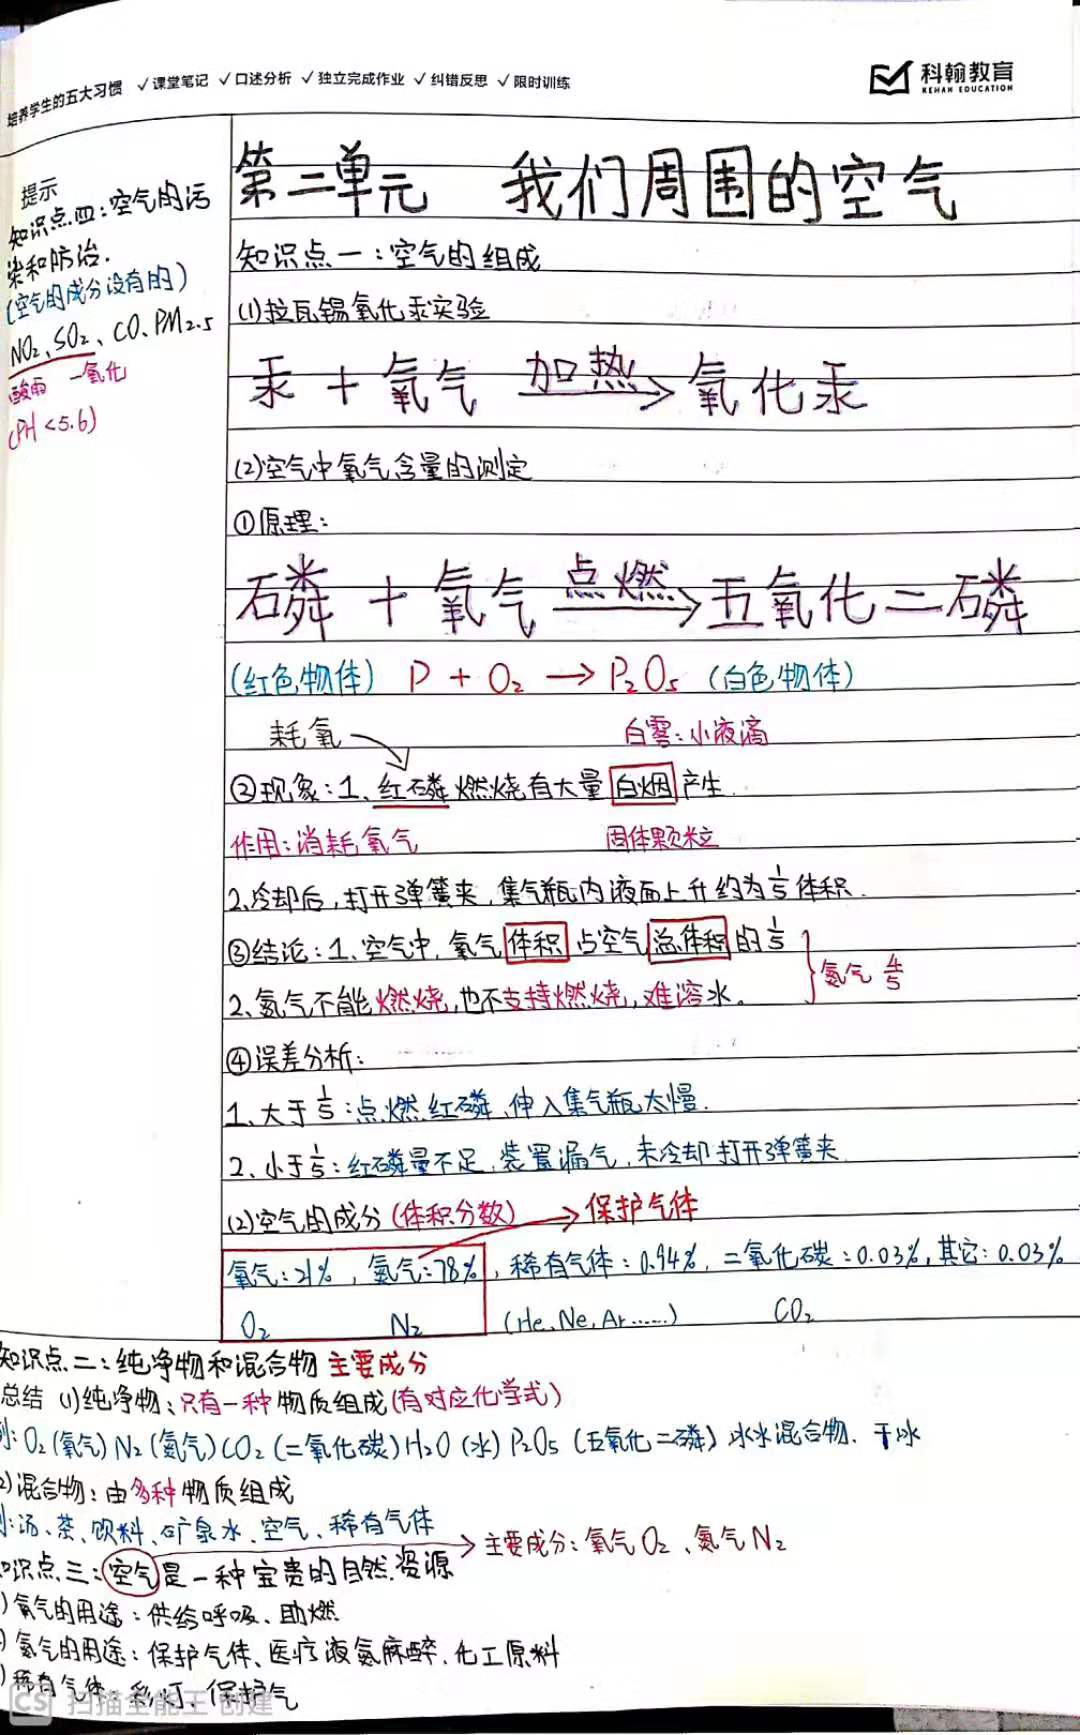 培养学生的五大习惯 ✓课堂笔记 ✓口述分析 ✓独立完成作业 ✓纠错反思 ✓限时训练
科翰教育
KEHAN EDUCATION
提示
知识点四：空气的污
染和防治.
(空气的成分没有的)
NO₂、SO₂、CO、PM2.5
酸雨 一氧化
(PH<5.6)
第二单元 我们周围的空气
知识点一：空气的组成
(1)拉瓦锡氧化汞实验
汞 + 氧气 加热→ 氧化汞
(2)空气中氧气含量的测定
①原理：
石磷 + 氧气 点燃→ 五氧化二磷
(红色物体) P + O₂ → P₂O₅ (白色物体)
耗氧 白雾：小液滴
②现象：1、红磷燃烧有大量白烟产生.
作用：消耗氧气 固体颗粒
2、冷却后，打开弹簧夹，集气瓶内液面上升约为1/5体积.
③结论：1、空气中，氧气体积占空气总体积的1/5
氮气 4/5
2、氮气不能燃烧，也不支持燃烧，难溶水。
④误差分析：
1、大于1/5：点燃红磷，伸入集气瓶太慢.
2、小于1/5：红磷量不足，装置漏气，未冷却打开弹簧夹
(2)空气的成分(体积分数) → 保护气体
氧气：21%，氮气：78%，稀有气体：0.94%，二氧化碳：0.03%，其它：0.03%
O₂ N₂ (He、Ne、Ar……) CO₂
知识点二：纯净物和混合物 主要成分
总结 (1)纯净物：只有一种物质组成(有对应化学式)
例：O₂(氧气) N₂(氮气) CO₂(二氧化碳) H₂O(水) P₂O₅(五氧化二磷) 冰水混合物、干冰
(2)混合物：由多种物质组成
例：汤、茶、饮料、矿泉水、空气、稀有气体
→ 主要成分：氧气O₂、氮气N₂
知识点三：空气是一种宝贵的自然资源
)氧气的用途：供给呼吸、助燃
)氮气的用途：保护气体、医疗液氮麻醉、化工原料
)稀有气体：彩灯、保护气
CS 扫描全能王 创建